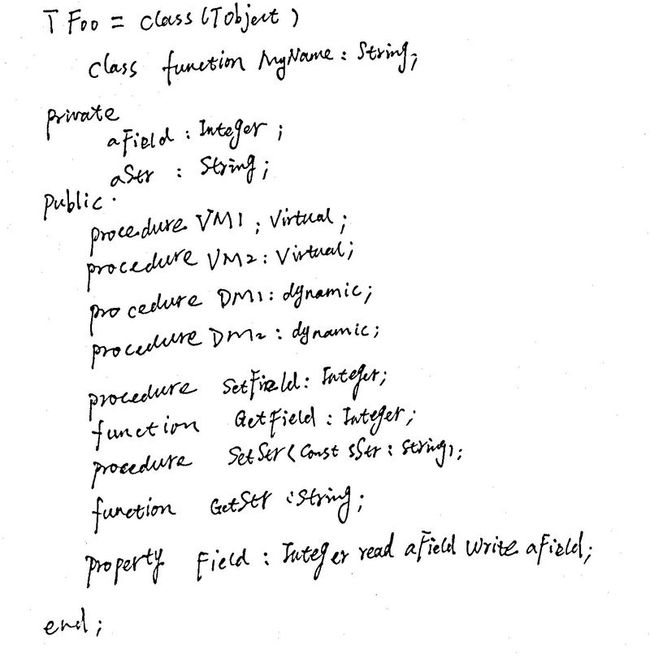 TFoo = class(TObject)
class function MyName : String;
private
aField : Integer ;
aStr : String;
public
procedure VM1 ; Virtual ;
procedure VM2 : Virtual;
procedure DM1 : dynamic;
procedure DM2 : dynamic;
procedure SetField : Integer;
function GetField : Integer;
procedure SetStr(Const sStr : String);
function GetStr : String;
property Field : Integer read aField Write aField;
end;